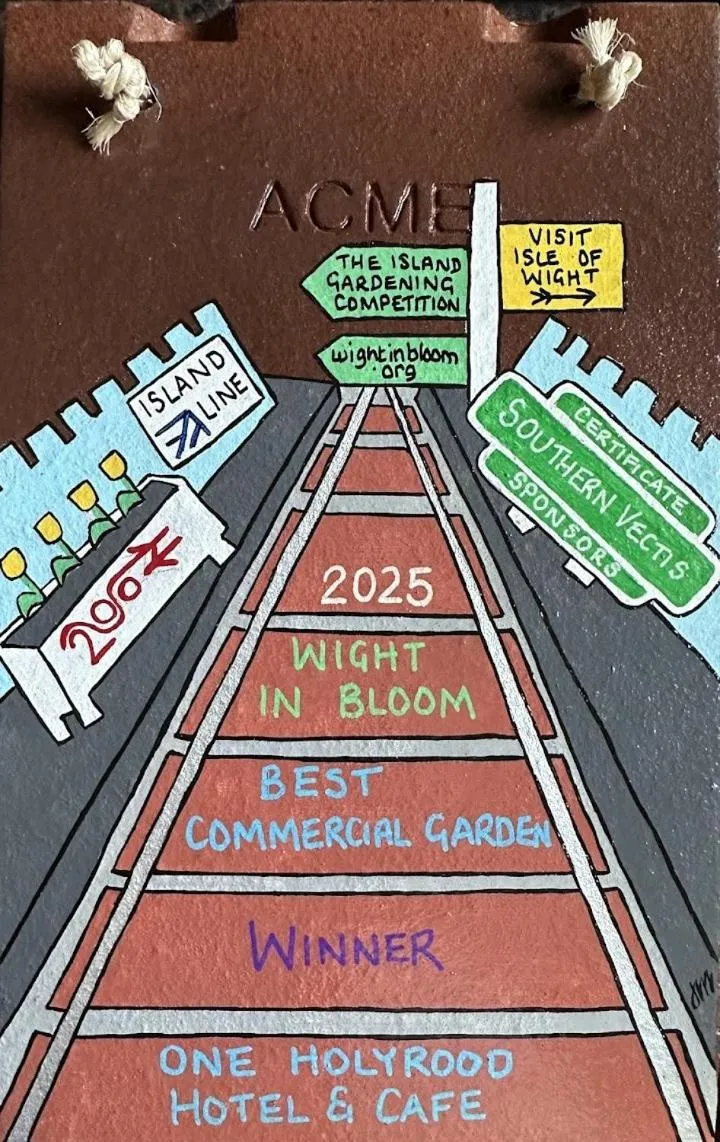 ACME
THE ISLAND
GARDENING
COMPETITION
VISIT
ISLE OF
WIGHT
wightinbloom
.org
ISLAND
LINE
CERTIFICATE
SOUTHERN VECTIS
SPONSORS
200
2025
WIGHT
IN BLOOM
BEST
COMMERCIAL GARDEN
WINNER
ONE HOLYROOD
HOTEL & CAFE